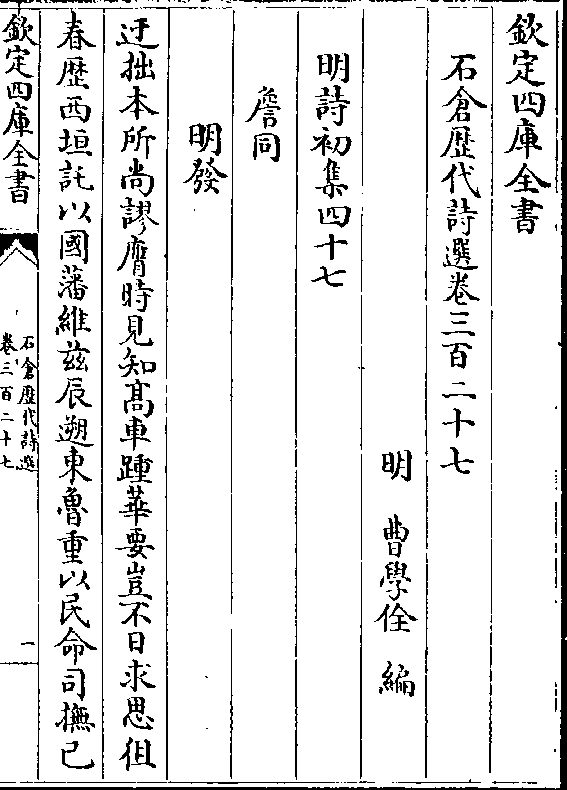 欽定四庫全書
石倉歴代詩選卷三百二十七
明 曹學佺 編
明詩初集四十七
詹同
明發
迂拙本所尚謬膺時見知髙車踵華要豈不日求思徂
春歴西垣託以國藩維兹辰遡東魯重以民命司撫已
欽定四庫全書
石倉歴代詩選
卷三百二十七
一